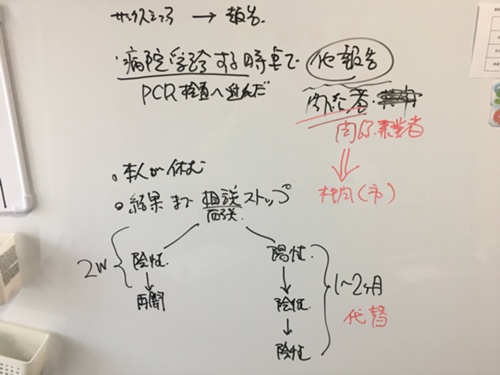 → 報告.
・病院受診する時点で 代報告
PCR検査へ進んだ
内定者・
内定・業者
。本人が休む
。結果まで 相談 ストップ
面談
2W
陰性.
陽性.
再開
陰性
陰性
1〜2ヶ月
代替